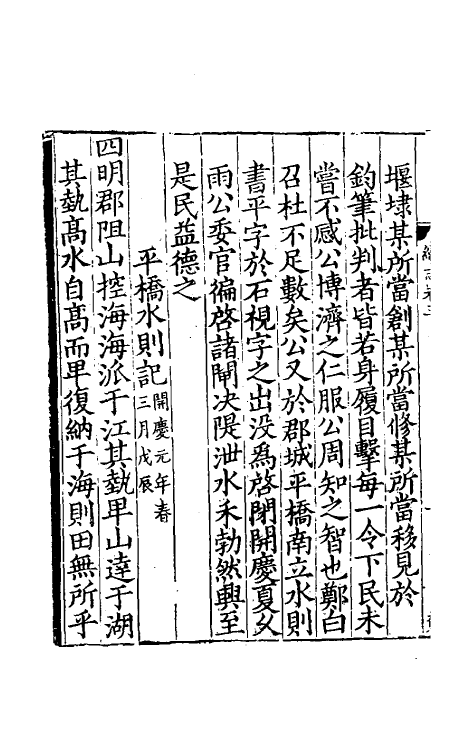 堰埭某所當創某所當修某所當移見於
鈞筆批判者皆若身履目擊每一令下民未
嘗不感公博濟之仁服公周知之智也鄭白
召杜不足數矣公又於郡城平橋南立水則
書平字於石視字之出没爲啓閉開慶夏夂
雨公委官徧啓諸閘决隄泄水禾勃然興至
是民益德之
平橋水則記開慶元年春三月戊辰
四明郡阻山控海海派于江其埶卑山達于湖
其埶髙水自髙而卑復納于海則田無所乎